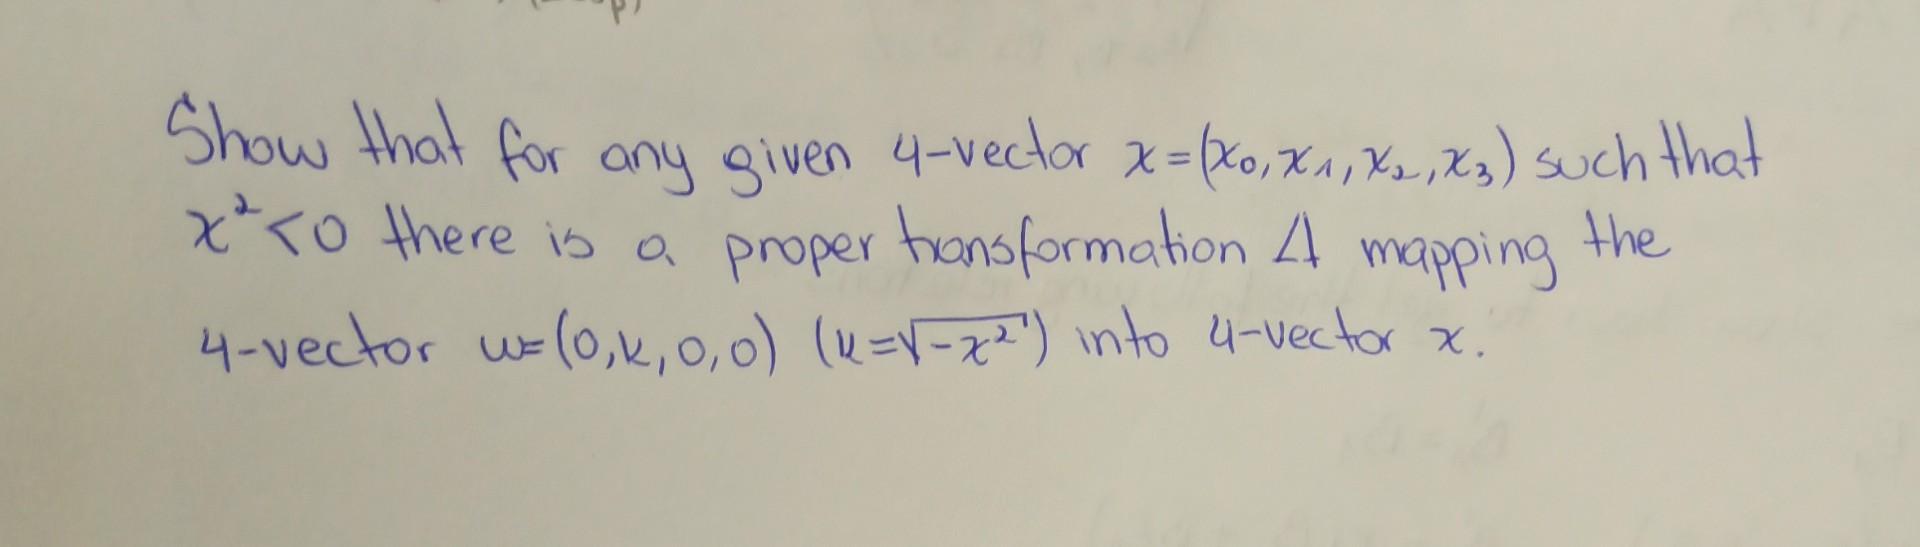 Show that for any given 4-vector x=(x₀,x₁,x₂,x₃) such that
x²<0 there is a proper transformation Λ mapping the
4-vector w=(0,k,0,0) (k=√-x²) into 4-vector x.